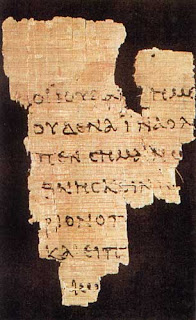 ΟΙΙΟΥΔΑΙ ΗΜ
ΟΥΔΕΝΑΙΝΑΟΛ
ΠΕΝϹΗΜΑΙΝΩ
ΘΝΗϹΚΕΙΝ
ΡΙΟΝΟΠ
ΚΑΙΕΙΠ